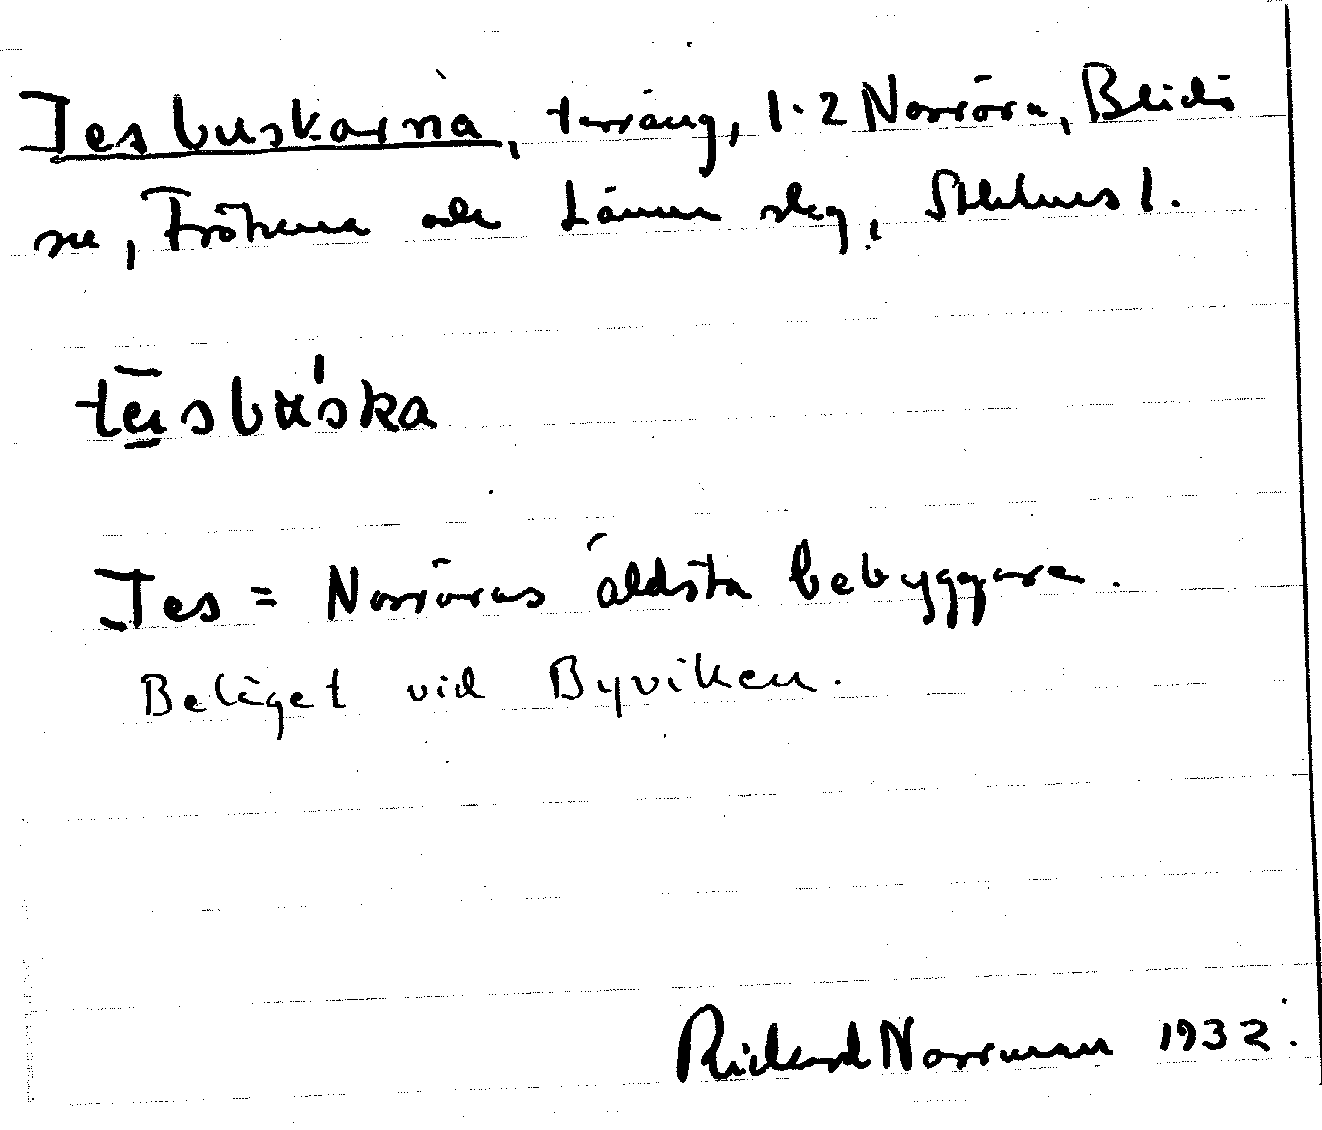 Tesbuskarna, terräng, 1-2 Norröra, Blidö
sn, Frötuna och Länna skg, Sthlms l.
tēu̲sbu̍ska
Tes = Norröras äldsta bebyggare.
Beläget vid Byviken.
Rickard Norrman 1932.